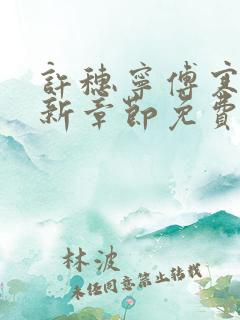 許穗寧傅寒
新章節免費
林波
未经同意禁止转载